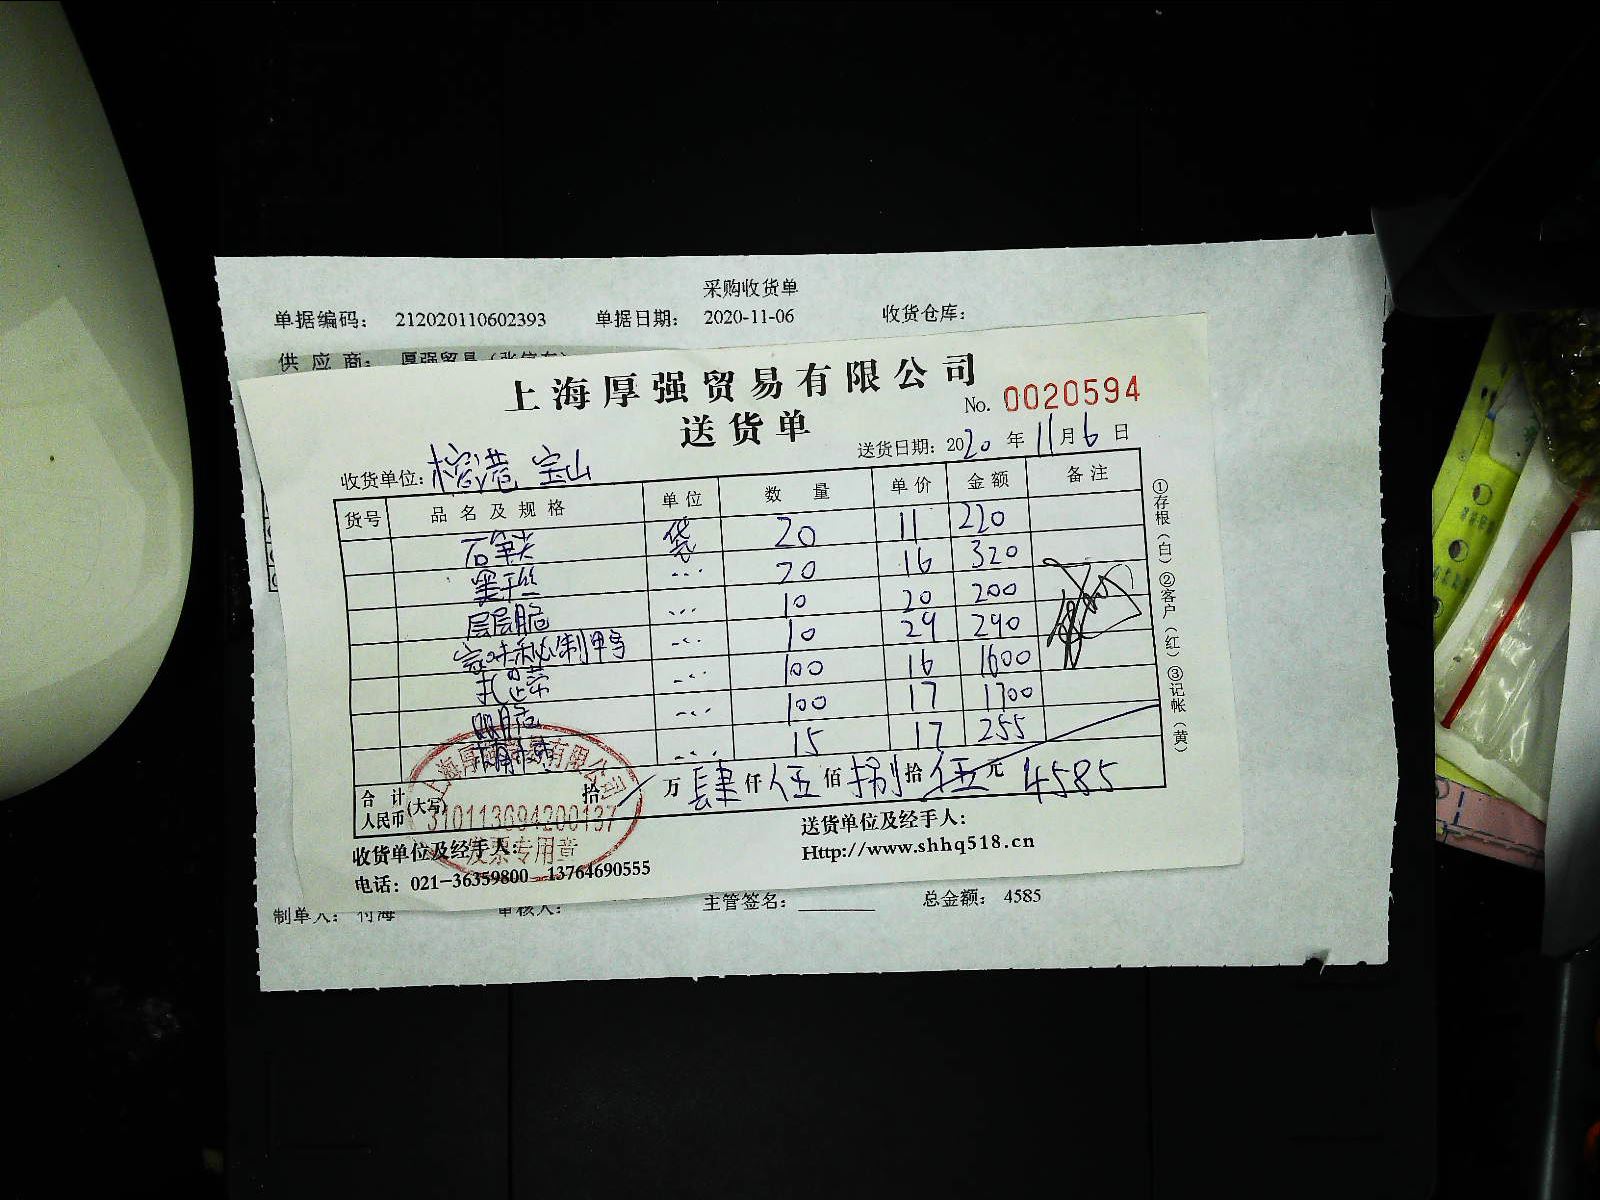 采购收货单
单据编码： 212020110602393 单据日期： 2020-11-06 收货仓库：
供应商： 厚强贸易
上海厚强贸易有限公司
No. 0020594
送货单
送货日期：2020年11月6日
收货单位： 宝山
货号 品名及规格 单位 数量 单价 金额 备注
袋 20 11 220
20 16 320
层层脆 10 20 200
秘制鸭 10 29 290
100 16 1600
100 17 1700
15 17 255
合计人民币(大写) 拾 万 肆仟伍佰捌拾伍元 4585
①存根（白）②客户（红）③记帐（黄）
上海厚强贸易有限公司
310113694200137
发票专用章
收货单位及经手人：
送货单位及经手人：
电话：021-36359800 13764690555
Http://www.shhq518.cn
制单人： 付海 审核人： 主管签名： 总金额： 4585